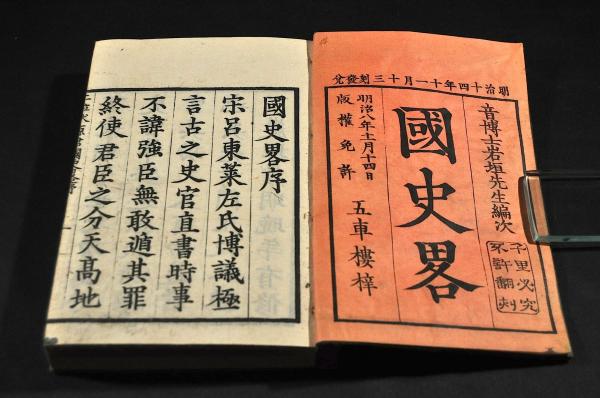 明治十四年十一月十三刻發兌
音博士岩垣先生編次
千里必究
不許翻刻
國史畧
明治八年十二月十四日
版權免許
五車樓梓
國史畧序
宋呂東萊左氏博議極
言古之史官直書時事
不諱強臣無敢遁其罪
終使君臣之分天髙地